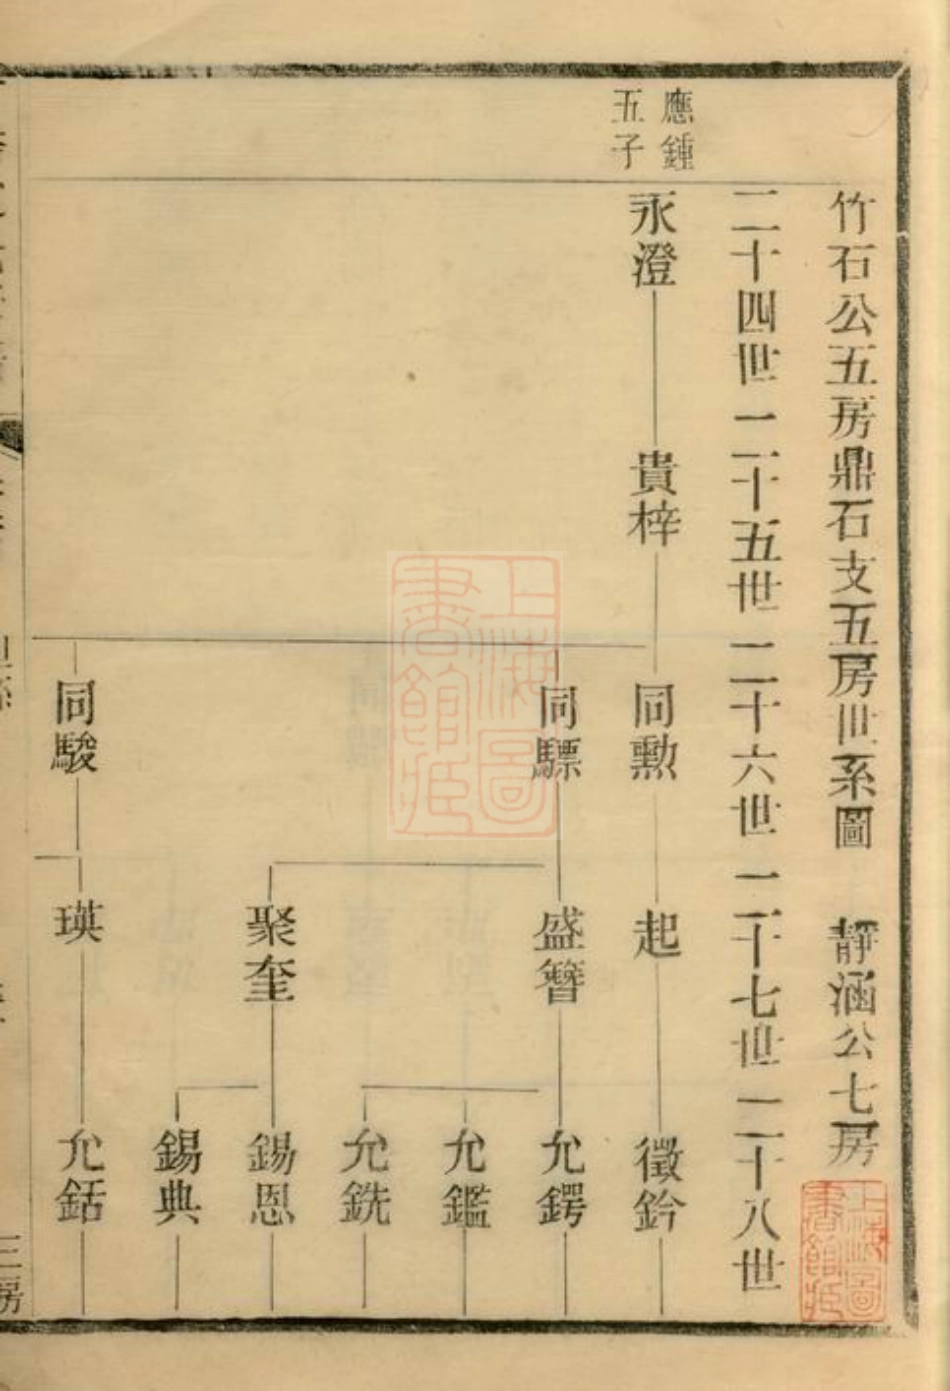 竹石公五房鼎石支五房世系圖　靜涵公七房
二十四世 二十五世 二十六世 二十七世 二十八世
應鍾
五子
永澄 貴梓 同勲 起 徵鈐
同驃 盛簪 允鍔
允鑑
允銑
聚奎 錫恩
錫典
同駿 瑛 允銛
三房
上海圖書館藏
上海圖書館藏